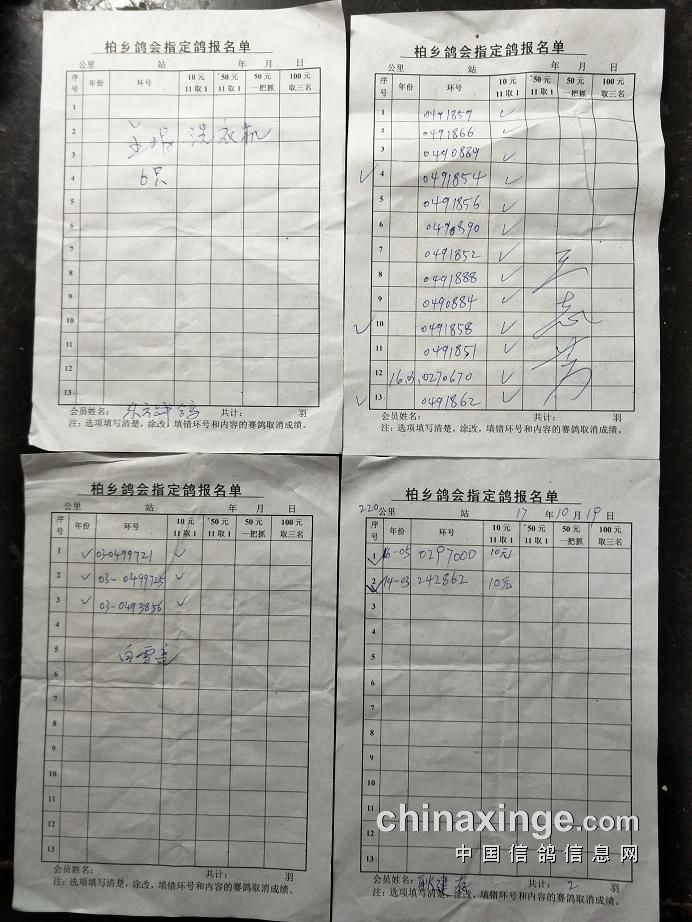 柏乡鸽会指定鸽报名单
公里 站 年 月 日
序号 年份 环号 10元 11取1 50元 11取1 50元 一把抓 100元 取三名
1
2
洗衣机
3
4 6只
5
6
7
8
9
10
11
12
13
会员姓名: 共计: 羽
注:选项填写清楚,涂改,填错环号和内容的赛鸽取消成绩。
柏乡鸽会指定鸽报名单
公里 站 年 月 日
序号 年份 环号 10元 11取1 50元 11取1 50元 一把抓 100元 取三名
1 0491859 ✓
2 0491866 ✓
3 0490889 ✓
✓ 4 0491854 ✓
5 0491856 ✓
6 0490890 ✓
7 0491852 ✓
8 0491888 ✓
9 0490884 ✓
✓ 10 0491858 ✓
11 0491851 ✓
12 16.03.0270670 ✓
✓ 13 0491862 ✓
王志芳
会员姓名: 共计: 羽
注:选项填写清楚,涂改,填错环号和内容的赛鸽取消成绩。
柏乡鸽会指定鸽报名单
公里 站 年 月 日
序号 年份 环号 10元 11取1 50元 11取1 50元 一把抓 100元 取三名
1 ✓ 03-0499721 ✓
2 ✓ 03-0499725 ✓
3 ✓ 03-0493856 ✓
4
5 白雪亮
6
7
8
9
10
11
12
13
会员姓名: 共计: 羽
注:选项填写清楚,涂改,填错环号和内容的赛鸽取消成绩。
柏乡鸽会指定鸽报名单
220 公里 站 17 年 10 月 19 日
序号 年份 环号 10元 11取1 50元 11取1 50元 一把抓 100元 取三名
1 ✓ 16-05 0297000 10元
2 ✓ 14-03 242862 10元
3
4
5
6
7
8
9
10
11
12
13
会员姓名: 耿建存 共计: 2 羽
注:选项填写清楚,涂改,填错环号和内容的赛鸽取消成绩。
chinaxinge.com
中国信鸽信息网